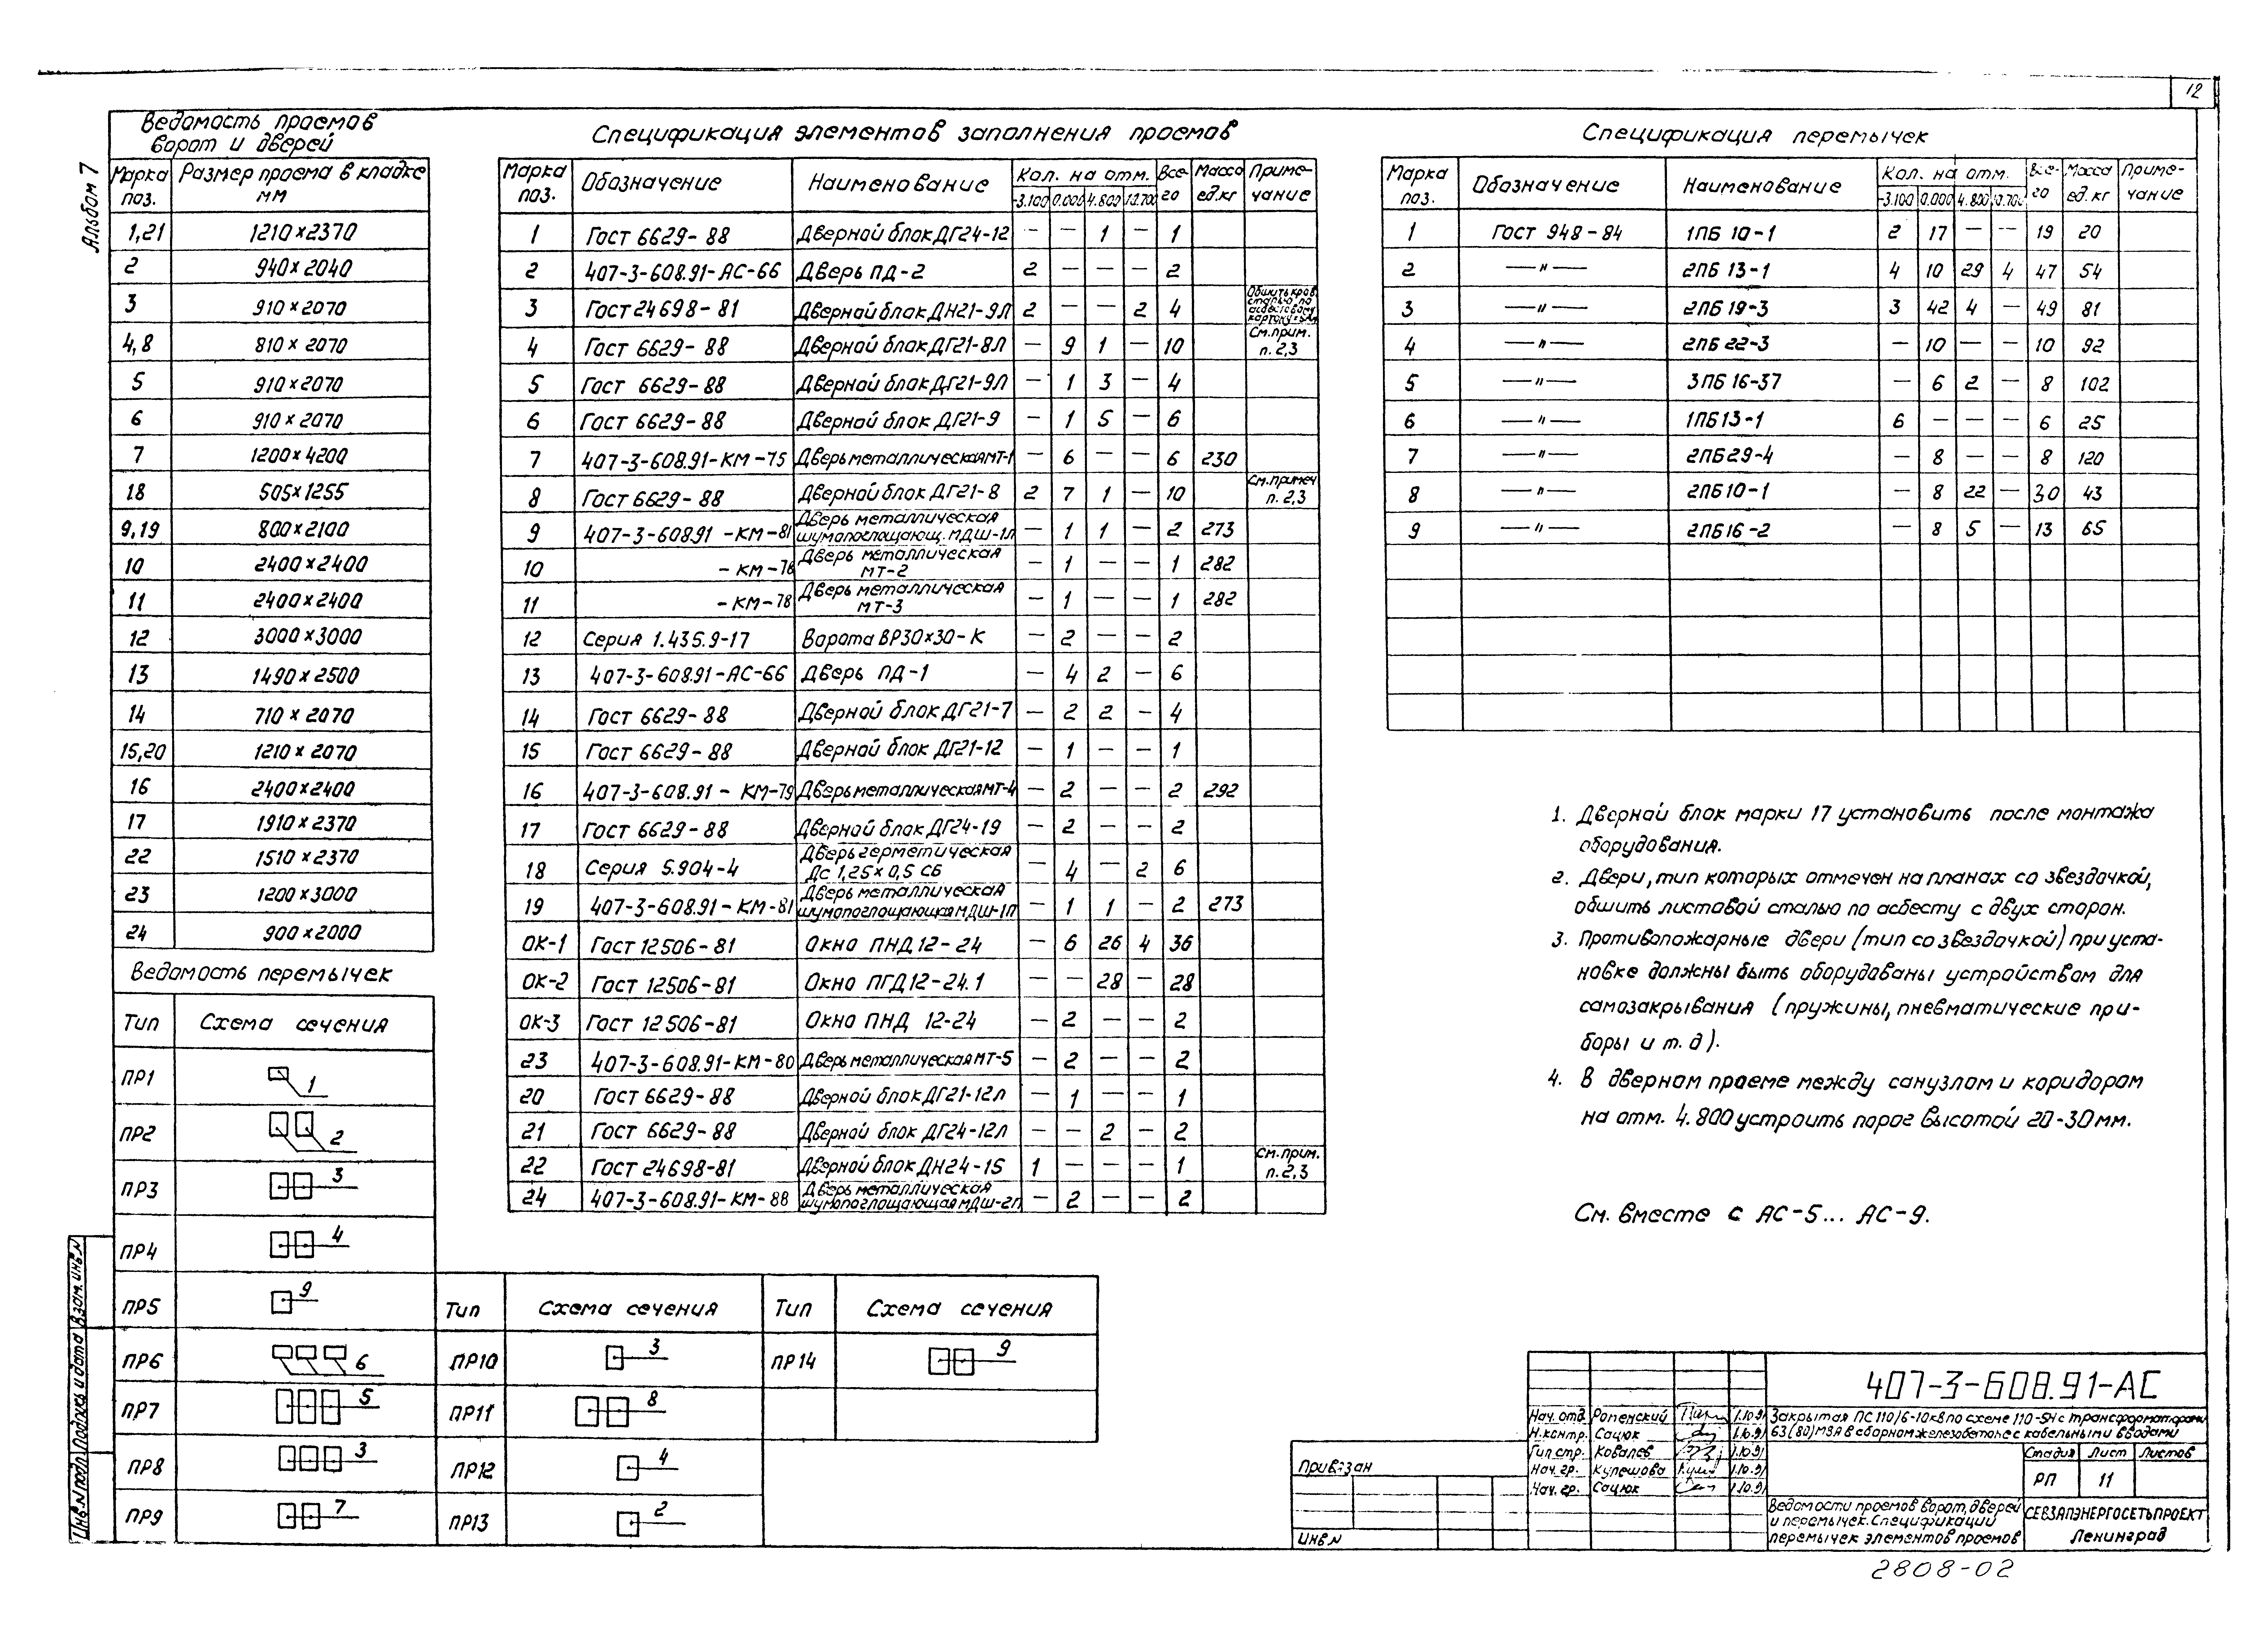 12
Альбом 7
Ведомость проемов
ворот и дверей
Марка поз. Размер проема в кладке мм
1,21 1210×2370
2 940×2040
3 910×2070
4,8 810×2070
5 910×2070
6 910×2070
7 1200×4200
18 505×1255
9,19 800×2100
10 2400×2400
11 2400×2400
12 3000×3000
13 1490×2500
14 710×2070
15,20 1210×2070
16 2400×2400
17 1910×2370
22 1510×2370
23 1200×3000
24 900×2000
Ведомость перемычек
Тип Схема сечения
ПР1 1
ПР2 2
ПР3 3
ПР4 4
ПР5 9
ПР6 6
ПР7 5
ПР8 3
ПР9 7
Тип Схема сечения
ПР10 3
ПР11 8
ПР12 4
ПР13 2
Тип Схема сечения
ПР14 9
Спецификация элементов заполнения проемов
Марка поз. Обозначение Наименование Кол. на отм. Все-го Масса ед.кг Приме-чание
-3.100 0.000 4.800 10.700
1 Гост 6629-88 Дверной блок ДГ24-12 — — 1 — 1
2 407-3-608.91-АС-66 Дверь ПД-2 2 — — — 2
3 Гост 24698-81 Дверной блок ДН21-9Л 2 — — 2 4 Обшить кров. сталью по асбестовому
4 Гост 6629-88 Дверной блок ДГ21-8Л — 9 1 — 10 См.прим. п. 2,3
5 Гост 6629-88 Дверной блок ДГ21-9Л — 1 3 — 4
6 Гост 6629-88 Дверной блок ДГ21-9 — 1 5 — 6
7 407-3-608.91-КМ-75 Дверь металлическая МТ-1 — 6 — — 6 230
8 Гост 6629-88 Дверной блок ДГ21-8 2 7 1 — 10 См.примеч п. 2,3
9 407-3-608.91-КМ-81 Дверь металлическая шумопоглощающ. МДШ-1Л — 1 1 — 2 273
10 -КМ-76 Дверь металлическая МТ-2 — 1 — — 1 282
11 -КМ-78 Дверь металлическая МТ-3 — 1 — — 1 282
12 Серия 1.435.9-17 Ворота ВР30×30-К — 2 — — 2
13 407-3-608.91-АС-66 Дверь ПД-1 — 4 2 — 6
14 Гост 6629-88 Дверной блок ДГ21-7 — 2 2 — 4
15 Гост 6629-88 Дверной блок ДГ21-12 — 1 — — 1
16 407-3-608.91-КМ-79 Дверь металлическая МТ-4 — 2 — — 2 292
17 Гост 6629-88 Дверной блок ДГ24-19 — 2 — — 2
18 Серия 5.904-4 Дверь герметическая Дс 1,25×0,5 СБ — 4 — 2 6
19 407-3-608.91-КМ-81 Дверь металлическая шумопоглощающая МДШ-1П — 1 1 — 2 273
ОК-1 Гост 12506-81 Окно ПНД 12-24 — 6 26 4 36
ОК-2 Гост 12506-81 Окно ПГД12-24.1 — — 28 — 28
ОК-3 Гост 12506-81 Окно ПНД 12-24 — 2 — — 2
23 407-3-608.91-КМ-80 Дверь металлическая МТ-5 — 2 — — 2
20 Гост 6629-88 Дверной блок ДГ21-12Л — 1 — — 1
21 Гост 6629-88 Дверной блок ДГ24-12Л — — 2 — 2
22 Гост 24698-81 Дверной блок ДН24-15 1 — — — 1 См.прим. п. 2,3
24 407-3-608.91-КМ-88 Дверь металлическая шумопоглощающая МДШ-2П — 2 — — 2
Спецификация перемычек
Марка поз. Обозначение Наименование Кол. на отм. Все-го Масса ед.кг Приме-чание
-3.100 0.000 4.800 10.700
1 Гост 948-84 1ПБ 10-1 2 17 — — 19 20
2 —"— 2ПБ 13-1 4 10 29 4 47 54
3 —"— 2ПБ 19-3 3 42 4 — 49 81
4 —"— 2ПБ 22-3 — 10 — — 10 92
5 —"— 3ПБ 16-37 — 6 2 — 8 102
6 —"— 1ПБ13-1 6 — — — 6 25
7 —"— 2ПБ29-4 — 8 — — 8 120
8 —"— 2ПБ10-1 — 8 22 — 30 43
9 —"— 2ПБ16-2 — 8 5 — 13 65
1. Дверной блок марки 17 установить после монтажа
оборудования.
2. Двери, тип которых отмечен на планах со звездочкой,
обшить листовой сталью по асбесту с двух сторон.
3. Противопожарные двери (тип со звездочкой) при уста-
новке должны быть оборудованы устройством для
самозакрывания (пружины, пневматические при-
боры и т.д).
4. В дверном проеме между санузлом и коридором
на отм. 4.800 устроить порог высотой 20-30 мм.
См. вместе с АС-5... АС-9.
407-3-608.91-АС
Нач. отд. Роменский 1.10.91
Н.контр. Сацюк 1.10.91
Гип стр. Ковалев 1.10.91
Нач. гр. Кулешова 1.10.91
Нач. гр. Сацюк 1.10.91
Закрытая ПС 110/6-10кВ по схеме 110-5Н с трансформаторами
63(80)МВА в сборном железобетоне с кабельными вводами
Стадия Лист Листов
РП 11
Ведомости проемов ворот, дверей
и перемычек. Спецификации
перемычек элементов проемов
СЕВЗАПЭНЕРГОСЕТЬПРОЕКТ
Ленинград
Привязан
Инв.N
Инв.N подл. Подпись и дата Взам. инв.N
2808-02